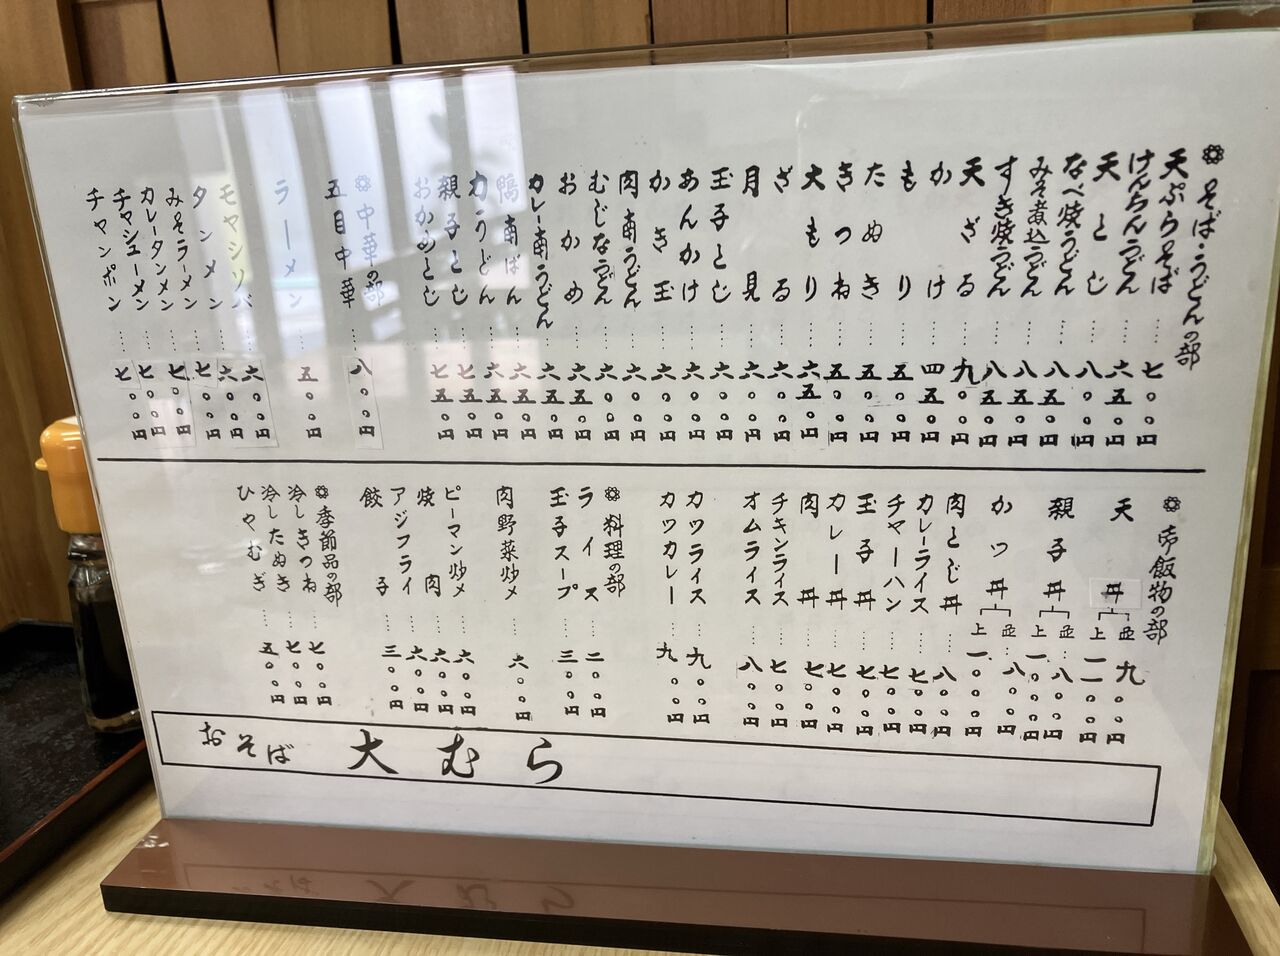 そば・うどんの部
天ぷらそば……七〇〇円
けんちんうどん……六五〇円
天とじ……八〇〇円
なべ焼うどん……八五〇円
みそ煮込うどん……八〇〇円
すき焼うどん……八五〇円
天ざる……九〇〇円
かけ……四五〇円
もり……五〇〇円
たぬき……五〇〇円
きつね……五〇〇円
大もり……六五〇円
ざる……六〇〇円
月見……六〇〇円
玉子とじ……六〇〇円
あんかけ……六〇〇円
かき玉……六〇〇円
肉南うどん……六〇〇円
むじなうどん……六〇〇円
おかめ……六五〇円
カレー南うどん……六五〇円
南ばん……六五〇円
力うどん……六五〇円
親子とじ……七五〇円
おかめとじ……七五〇円
中華の部
五目中華……八〇〇円
ラーメン……五〇〇円
モヤシソバ……六〇〇円
タンメン……六〇〇円
みそラーメン……七〇〇円
カレータンメン……七〇〇円
チャシューメン……七〇〇円
チャンポン……七〇〇円
御飯物の部
天丼 並 九〇〇円 上 一一〇〇円
親子丼 並 八〇〇円 上 一〇〇〇円
かつ丼 並 八〇〇円 上 一〇〇〇円
肉とじ丼……八〇〇円
カレーライス……七〇〇円
チャーハン……七〇〇円
玉子丼……七〇〇円
カレー丼……七〇〇円
肉丼……七〇〇円
チキンライス……七〇〇円
オムライス……八〇〇円
カツライス……九〇〇円
カツカレー……九〇〇円
料理の部
ライス……二〇〇円
玉子スープ……三〇〇円
肉野菜炒メ……六〇〇円
ピーマン炒メ……六〇〇円
焼肉……六〇〇円
アジフライ……六〇〇円
餃子……三〇〇円
季節品の部
冷しきつね……七〇〇円
冷したぬき……七〇〇円
ひやむぎ……五〇〇円
おそば 大むら